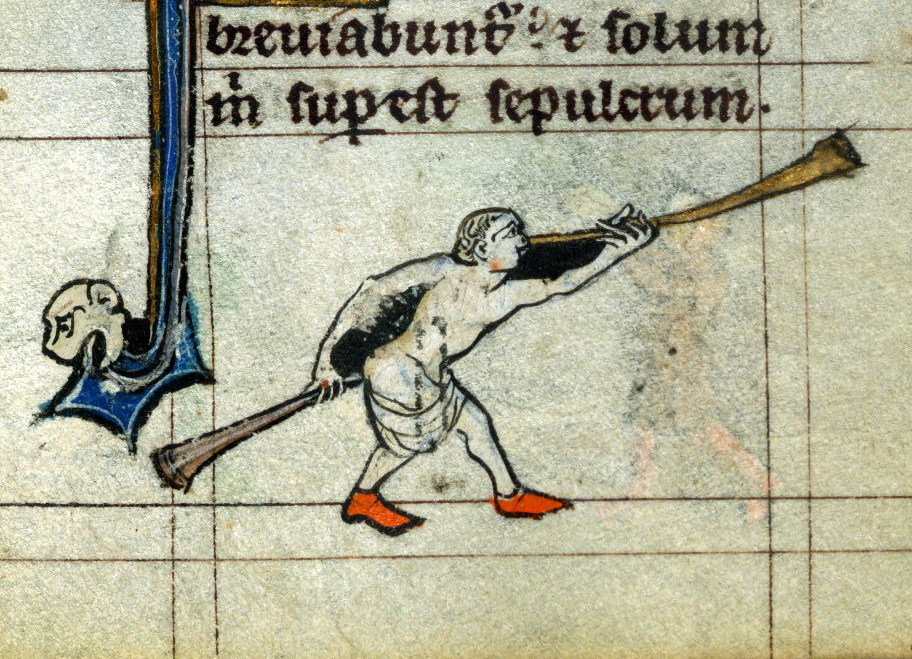 breuiabunt᷑ ⁊ solum
mͥ suꝑest sepulcrum.